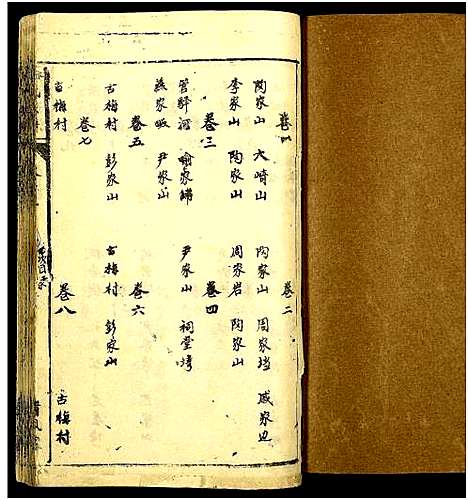 卷一
卷二
陶家山 大崎山
陶家山 周家塆 戚家边
李家山 陶家山
周家岩 陶家山
卷三
卷四
管驿河 喻家
尹家山 祠堂塆
燕家畈 尹家山
卷五
卷六
古梅村 彭家山
古梅村 彭家山
卷七
卷八
古梅村
古梅村
目录